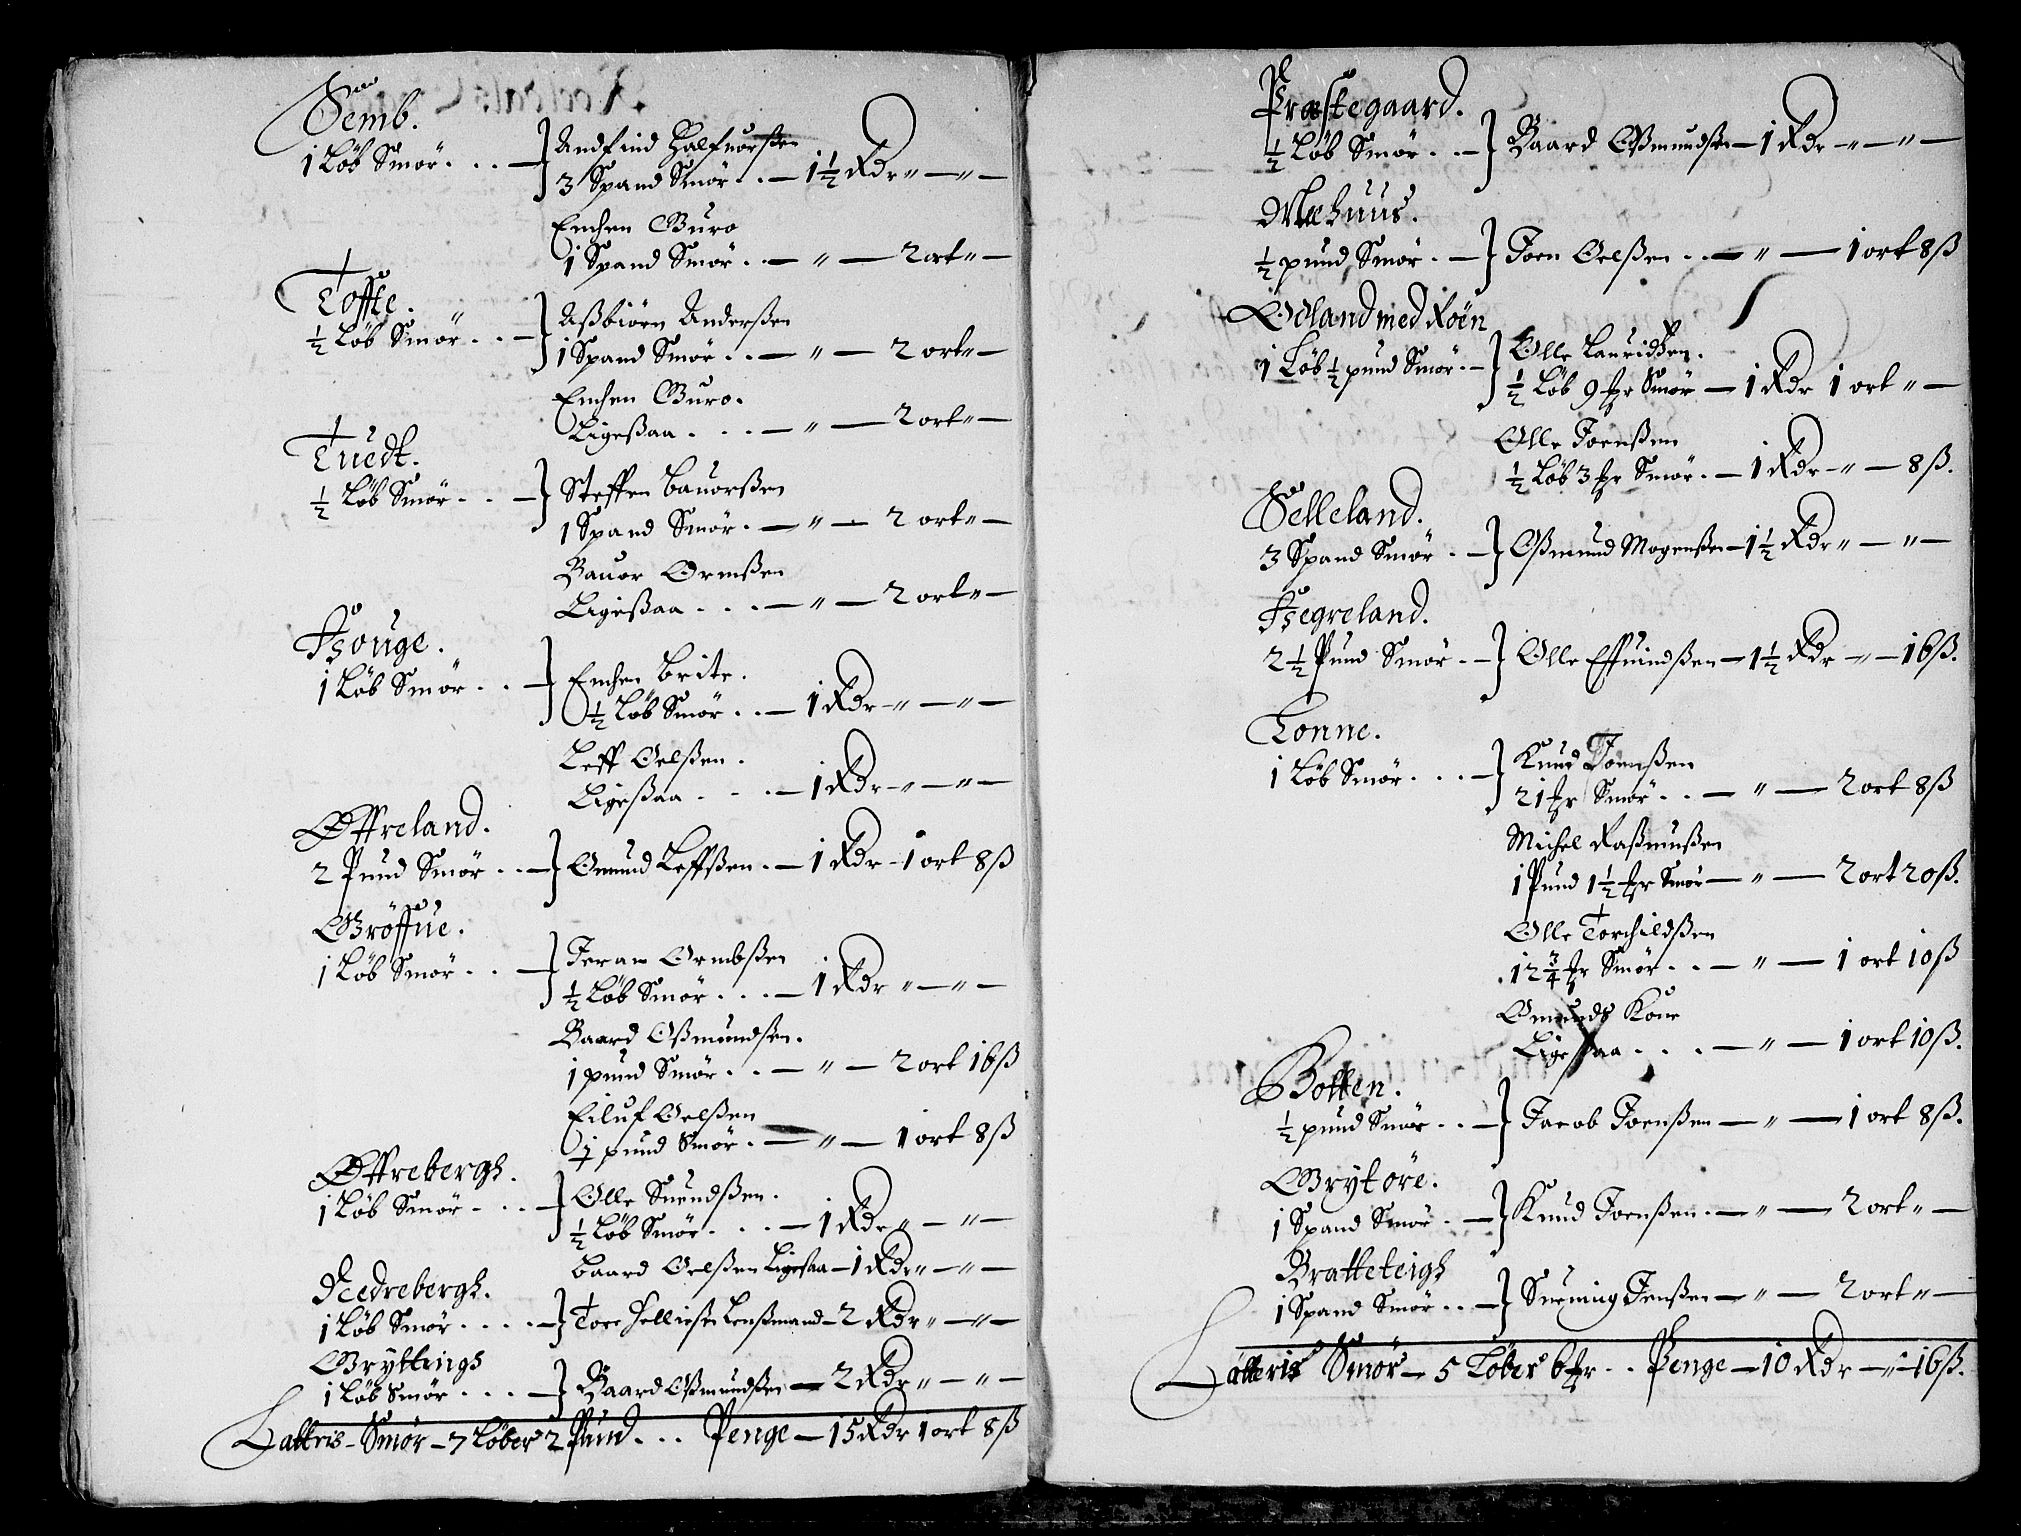 Semb.
1 Løb Smør. . . — } Andfind Halfuorßen
3 Spand Smør. . — 1½ Rdr „ — „ —
Enchen Guro
1 Spand Smør. . — „ — 2 ort „ —
Toffte.
½ Løb Smør. . . — } Aßbiørn Anderßen
1 Spand Smør. . — „ — 2 ort „ —
Enchen Guro.
Ligeßaa. . . — „ — 2 ort „ —
Tuedt.
½ Løb Smør. . . — } Steffen Bauorßen
1 Spand Smør. — „ — 2 ort „ —
Bauor Ormßen
Ligeßaa. . . — „ — 2 ort „ —
Houge.
1 Løb Smør. . . — } Enchen Brite.
½ Løb Smør. . — 1 Rdr — „ — „ —
Leff Oelßen.
Ligeßaa. . . — 1 Rdr — „ — „ —
Øffreland.
2 Pund Smør. . — } Omund Leffßen. — 1 Rdr — 1 ort 8 ß
Grøffue.
1 Løb Smør. . . — } Ormbßen
½ Løb Smør. . . — 1 Rdr „ — „ —
Baard Oßmundßen.
1 pund Smør. . — „ — 2 ort 16 ß
Eiluf Oelßen
½ pund Smør. — „ — 1 ort 8 ß
Øffrebergh.
1 Løb Smør. . . — } Olle Suendßen.
½ Løb Smør. . . — 1 Rdr „ — „ —
Baard Oelßen Ligeßaa — 1 Rdr „ — „ —
Nedrebergh.
1 Løb Smør. . . . — } Tore Helliesen Lenßmand — 2 Rdr „ — „ —
Gryttingh
1 Løb Smør. . . . — } Baard Oßmundßen — 2 Rdr „ — „ —
Latteris — Smør — 7 Løber 2 Pund. . . Penge — 15 Rdr 1 ort 8 ß
Præstegaard.
½ Løb Smør. . — } Baard Oßmundßen — 1 Rdr — „ — „ —
Mæhuus.
½ pund Smør. — } Joen Oelßen. . — „ — 1 ort 8 ß
Odland med Roen
1 Løb ½ pund Smør. — } Olle Lauridßen.
½ Løb 9 mr Smør — 1 Rdr 1 ort „ —
Olle Joenßen
½ Løb 3 mr Smør. — 1 Rdr — „ — 8 ß.
Selleland.
3 Spand Smør. — } Oßmund Mogenßen — 1½ Rdr „ — „ —
Hegreland.
2½ Pund Smør. — } Olle Effuindßen — 1½ Rdr — „ — 16 ß.
Tonne.
1 Løb Smør. . . — } Knud Joenßen
21 mr Smør. . — „ — 2 ort 8 ß
Michel Raßmußen
1 Pund 1½ mr Smør — „ — 2 ort 20 ß.
Olle Torchildßen
12¾ mr Smør. . — „ — 1 ort 10 ß
Omunds Kone
Ligeßaa. . . — „ — 1 ort 10 ß.
Botten.
½ pund Smør. . — } Jacob Joenßen — „ — 1 ort 8 ß.
Grytøre.
1 Spand Smør. — } Knud Joenßen. — „ — 2 ort „ —
Bratteteigh
1 Spand Smør. . — } Jenßen — „ — 2 ort „ —
Latteris Smør — 5 Løber 6 mr . . Penge — 10 Rdr — „ — 16 ß.